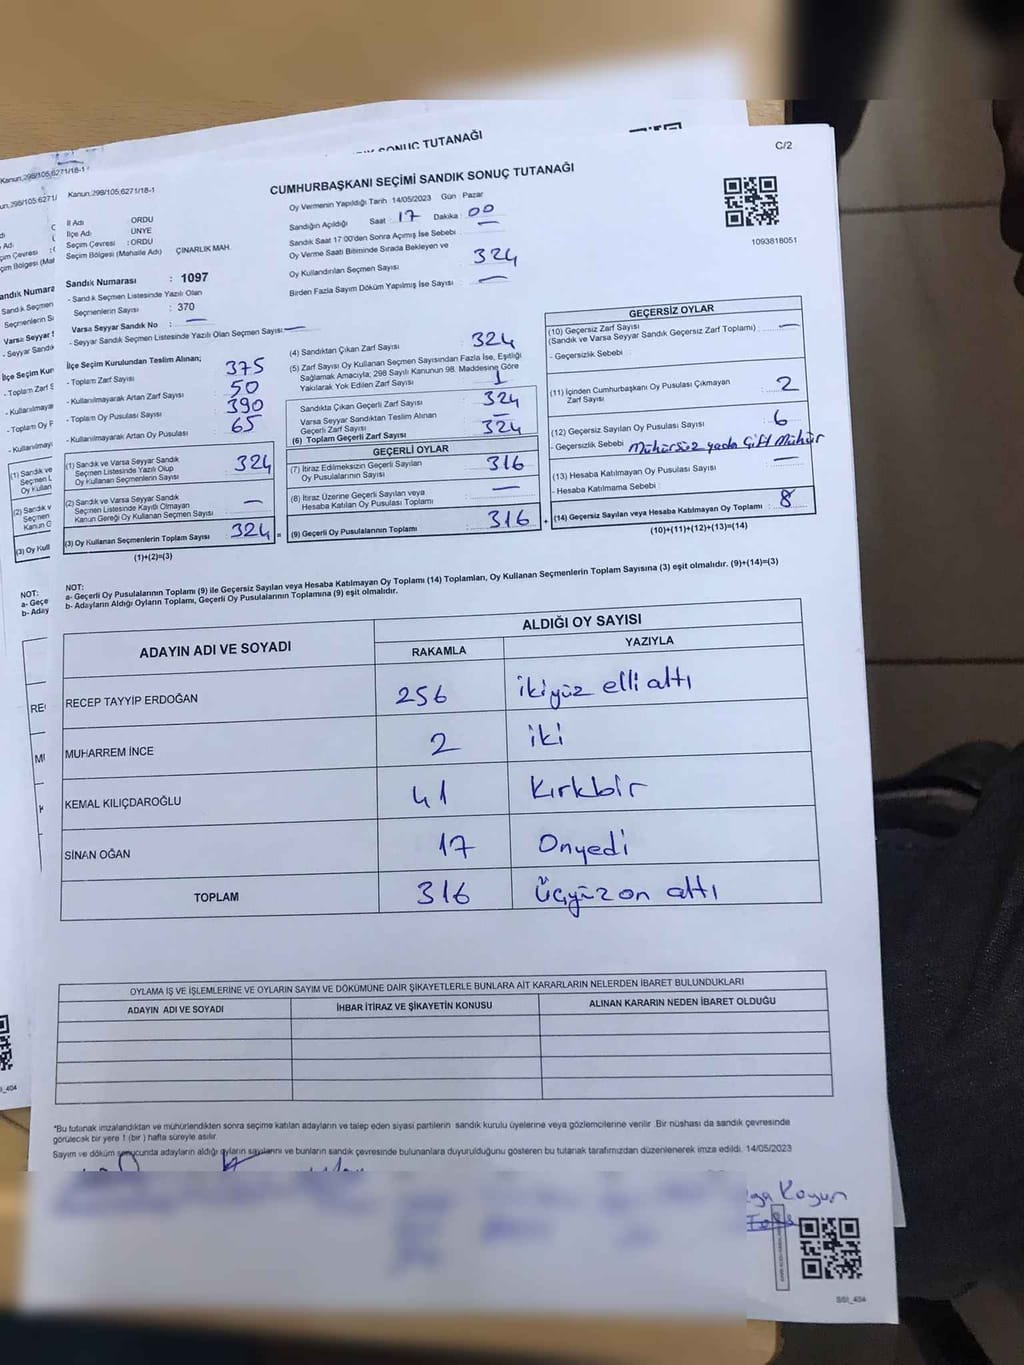 SONUÇ TUTANAĞI
C/2
Kanun:298/105;6271/18-1
Kanun:298/105;6271/18-1
CUMHURBAŞKANI SEÇİMİ SANDIK SONUÇ TUTANAĞI
Oy Vermenin Yapıldığı Tarih 14/05/2023 Gün : Pazar
Sandığın Açıldığı Saat : 17 Dakika : 00
Sandık Saat 17:00'den Sonra Açımış İse Sebebi : —
Oy Verme Saati Bitiminde Sırada Bekleyen ve
Oy Kullandırılan Seçmen Sayısı 324
Birden Fazla Sayım Döküm Yapılmış İse Sayısı : —
1093818051
İl Adı : ORDU
İlçe Adı : ÜNYE
Seçim Çevresi : ORDU
Seçim Bölgesi (Mahalle Adı) ÇINARLIK MAH.
Sandık Numarası : 1097
- Sandık Seçmen Listesinde Yazılı Olan
Seçmenlerin Sayısı : 370
Varsa Seyyar Sandık No : —
- Seyyar Sandık Seçmen Listesinde Yazılı Olan Seçmen Sayısı: —
İlçe Seçim Kurulundan Teslim Alınan;
- Toplam Zarf Sayısı 375
- Kullanılmayarak Artan Zarf Sayısı 50
- Toplam Oy Pusulası Sayısı 390
- Kullanılmayarak Artan Oy Pusulası 65
(1) Sandık ve Varsa Seyyar Sandık
Seçmen Listesinde Yazılı Olup
Oy Kullanan Seçmenlerin Sayısı 324
(2) Sandık ve Varsa Seyyar Sandık
Seçmen Listesinde Kayıtlı Olmayan
Kanun Gereği Oy Kullanan Seçmen Sayısı —
(3) Oy Kullanan Seçmenlerin Toplam Sayısı 324 =
(1)+(2)=(3)
(4) Sandıktan Çıkan Zarf Sayısı 324
(5) Zarf Sayısı Oy Kullanan Seçmen Sayısından Fazla İse, Eşitliği
Sağlamak Amacıyla; 298 Sayılı Kanunun 98. Maddesine Göre
Yakılarak Yok Edilen Zarf Sayısı 1
Sandıkta Çıkan Geçerli Zarf Sayısı 324
Varsa Seyyar Sandıktan Teslim Alınan
Geçerli Zarf Sayısı —
(6) Toplam Geçerli Zarf Sayısı 324
GEÇERLİ OYLAR
(7) İtiraz Edilmeksizin Geçerli Sayılan
Oy Pusulalarının Sayısı 316
(8) İtiraz Üzerine Geçerli Sayılan veya
Hesaba Katılan Oy Pusulası Toplamı —
(9) Geçerli Oy Pusulalarının Toplamı 316 +
GEÇERSİZ OYLAR
(10) Geçersiz Zarf Sayısı
(Sandık ve Varsa Seyyar Sandık Geçersiz Zarf Toplamı) : —
- Geçersizlik Sebebi :
(11) İçinden Cumhurbaşkanı Oy Pusulası Çıkmayan
Zarf Sayısı : 2
(12) Geçersiz Sayılan Oy Pusulası Sayısı : 6
- Geçersizlik Sebebi : Mühürsüz yada Çift Mühür
(13) Hesaba Katılmayan Oy Pusulası Sayısı : —
- Hesaba Katılmama Sebebi :
(14) Geçersiz Sayılan veya Hesaba Katılmayan Oy Toplamı : 8
(10)+(11)+(12)+(13)=(14)
NOT:
a- Geçerli Oy Pusulalarının Toplamı (9) ile Geçersiz Sayılan veya Hesaba Katılmayan Oy Toplamı (14) Toplamları, Oy Kullanan Seçmenlerin Toplam Sayısına (3) eşit olmalıdır. (9)+(14)=(3)
b- Adayların Aldığı Oyların Toplamı, Geçerli Oy Pusulalarının Toplamına (9) eşit olmalıdır.
ADAYIN ADI VE SOYADI
ALDIĞI OY SAYISI
RAKAMLA YAZIYLA
RECEP TAYYİP ERDOĞAN 256 ikiyüz elli altı
MUHARREM İNCE 2 iki
KEMAL KILIÇDAROĞLU 41 Kırkbir
SİNAN OĞAN 17 Onyedi
TOPLAM 316 Üçyüz on altı
OYLAMA İŞ VE İŞLEMLERİNE VE OYLARIN SAYIM VE DÖKÜMÜNE DAİR ŞİKAYETLERLE BUNLARA AİT KARARLARIN NELERDEN İBARET BULUNDUKLARI
ADAYIN ADI VE SOYADI İHBAR İTİRAZ VE ŞİKAYETİN KONUSU ALINAN KARARIN NEDEN İBARET OLDUĞU
*Bu tutanak imzalandıktan ve mühürlendikten sonra seçime katılan adayların ve talep eden siyasi partilerin sandık kurulu üyelerine veya gözlemcilerine verilir. Bir nüshası da sandık çevresinde
görülecek bir yere 1 (bir ) hafta süreyle asılır.
Sayım ve döküm sonucunda adayların aldığı oyların sayılarını ve bunların sandık çevresinde bulunanlara duyurulduğunu gösteren bu tutanak tarafımızdan düzenlenerek imza edildi. 14/05/2023
Koyun
SSI_404